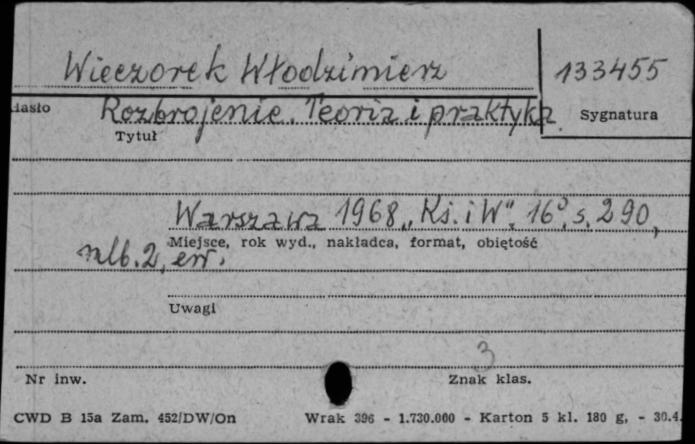 Wieczorek Włodzimierz 133455
Hasło Rozbrojenie. Teoria i praktyka Sygnatura
Tytuł
Warszawa 1968 „Ks. i W", 16°, s. 290,
Miejsce, rok wyd., nakładca, format, objętość
nlb. 2, err.
Uwagi
3
Nr inw. Znak klas.
CWD B 15a Zam. 452/DW/On Wrak 396 - 1.730.000 - Karton 5 kl. 180 g, - 30.4.